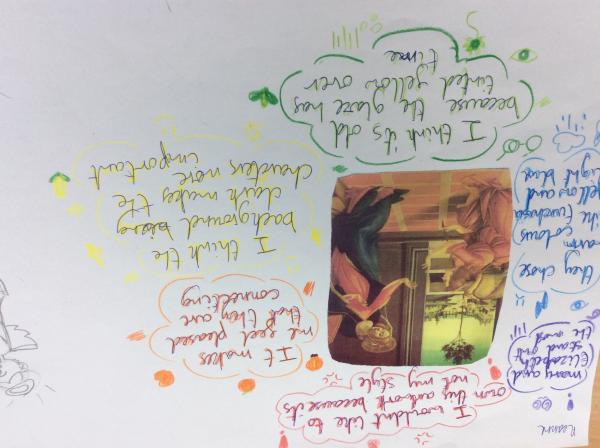 Reanne
I wouldnt like to
own this artwork because its
not my style
mary and
Elizabeth
stand out
the most
It makes
me feel pleased
that they are
connecting
they chose
warm colours
like
yellow and
light blue
I think the
background being
dark makes the
charcters more
important
I think its old
because the glaze has
tinted yellow over
time